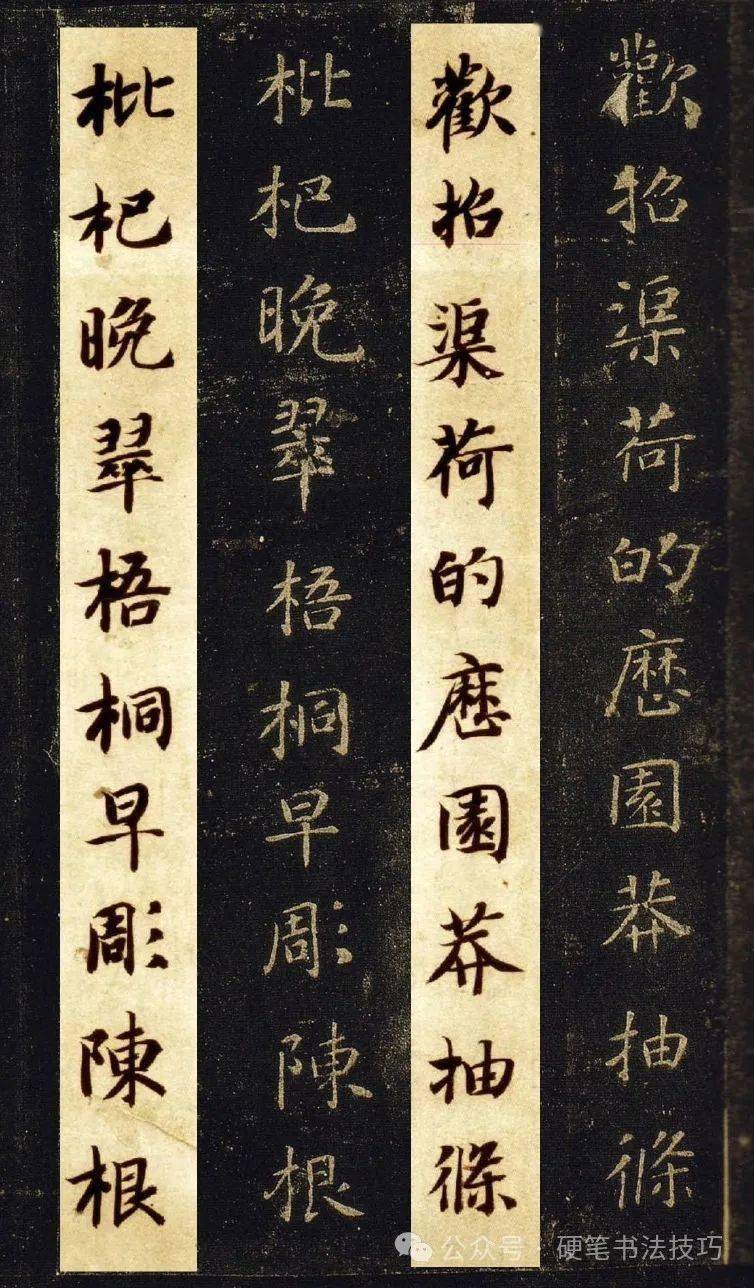 歡招渠荷的歷園莽抽條
歡招渠荷的歷園莽抽條
枇杷晚翠梧桐早彫陳根
枇杷晚翠梧桐早彫陳根
公众号 · 硬笔书法技巧